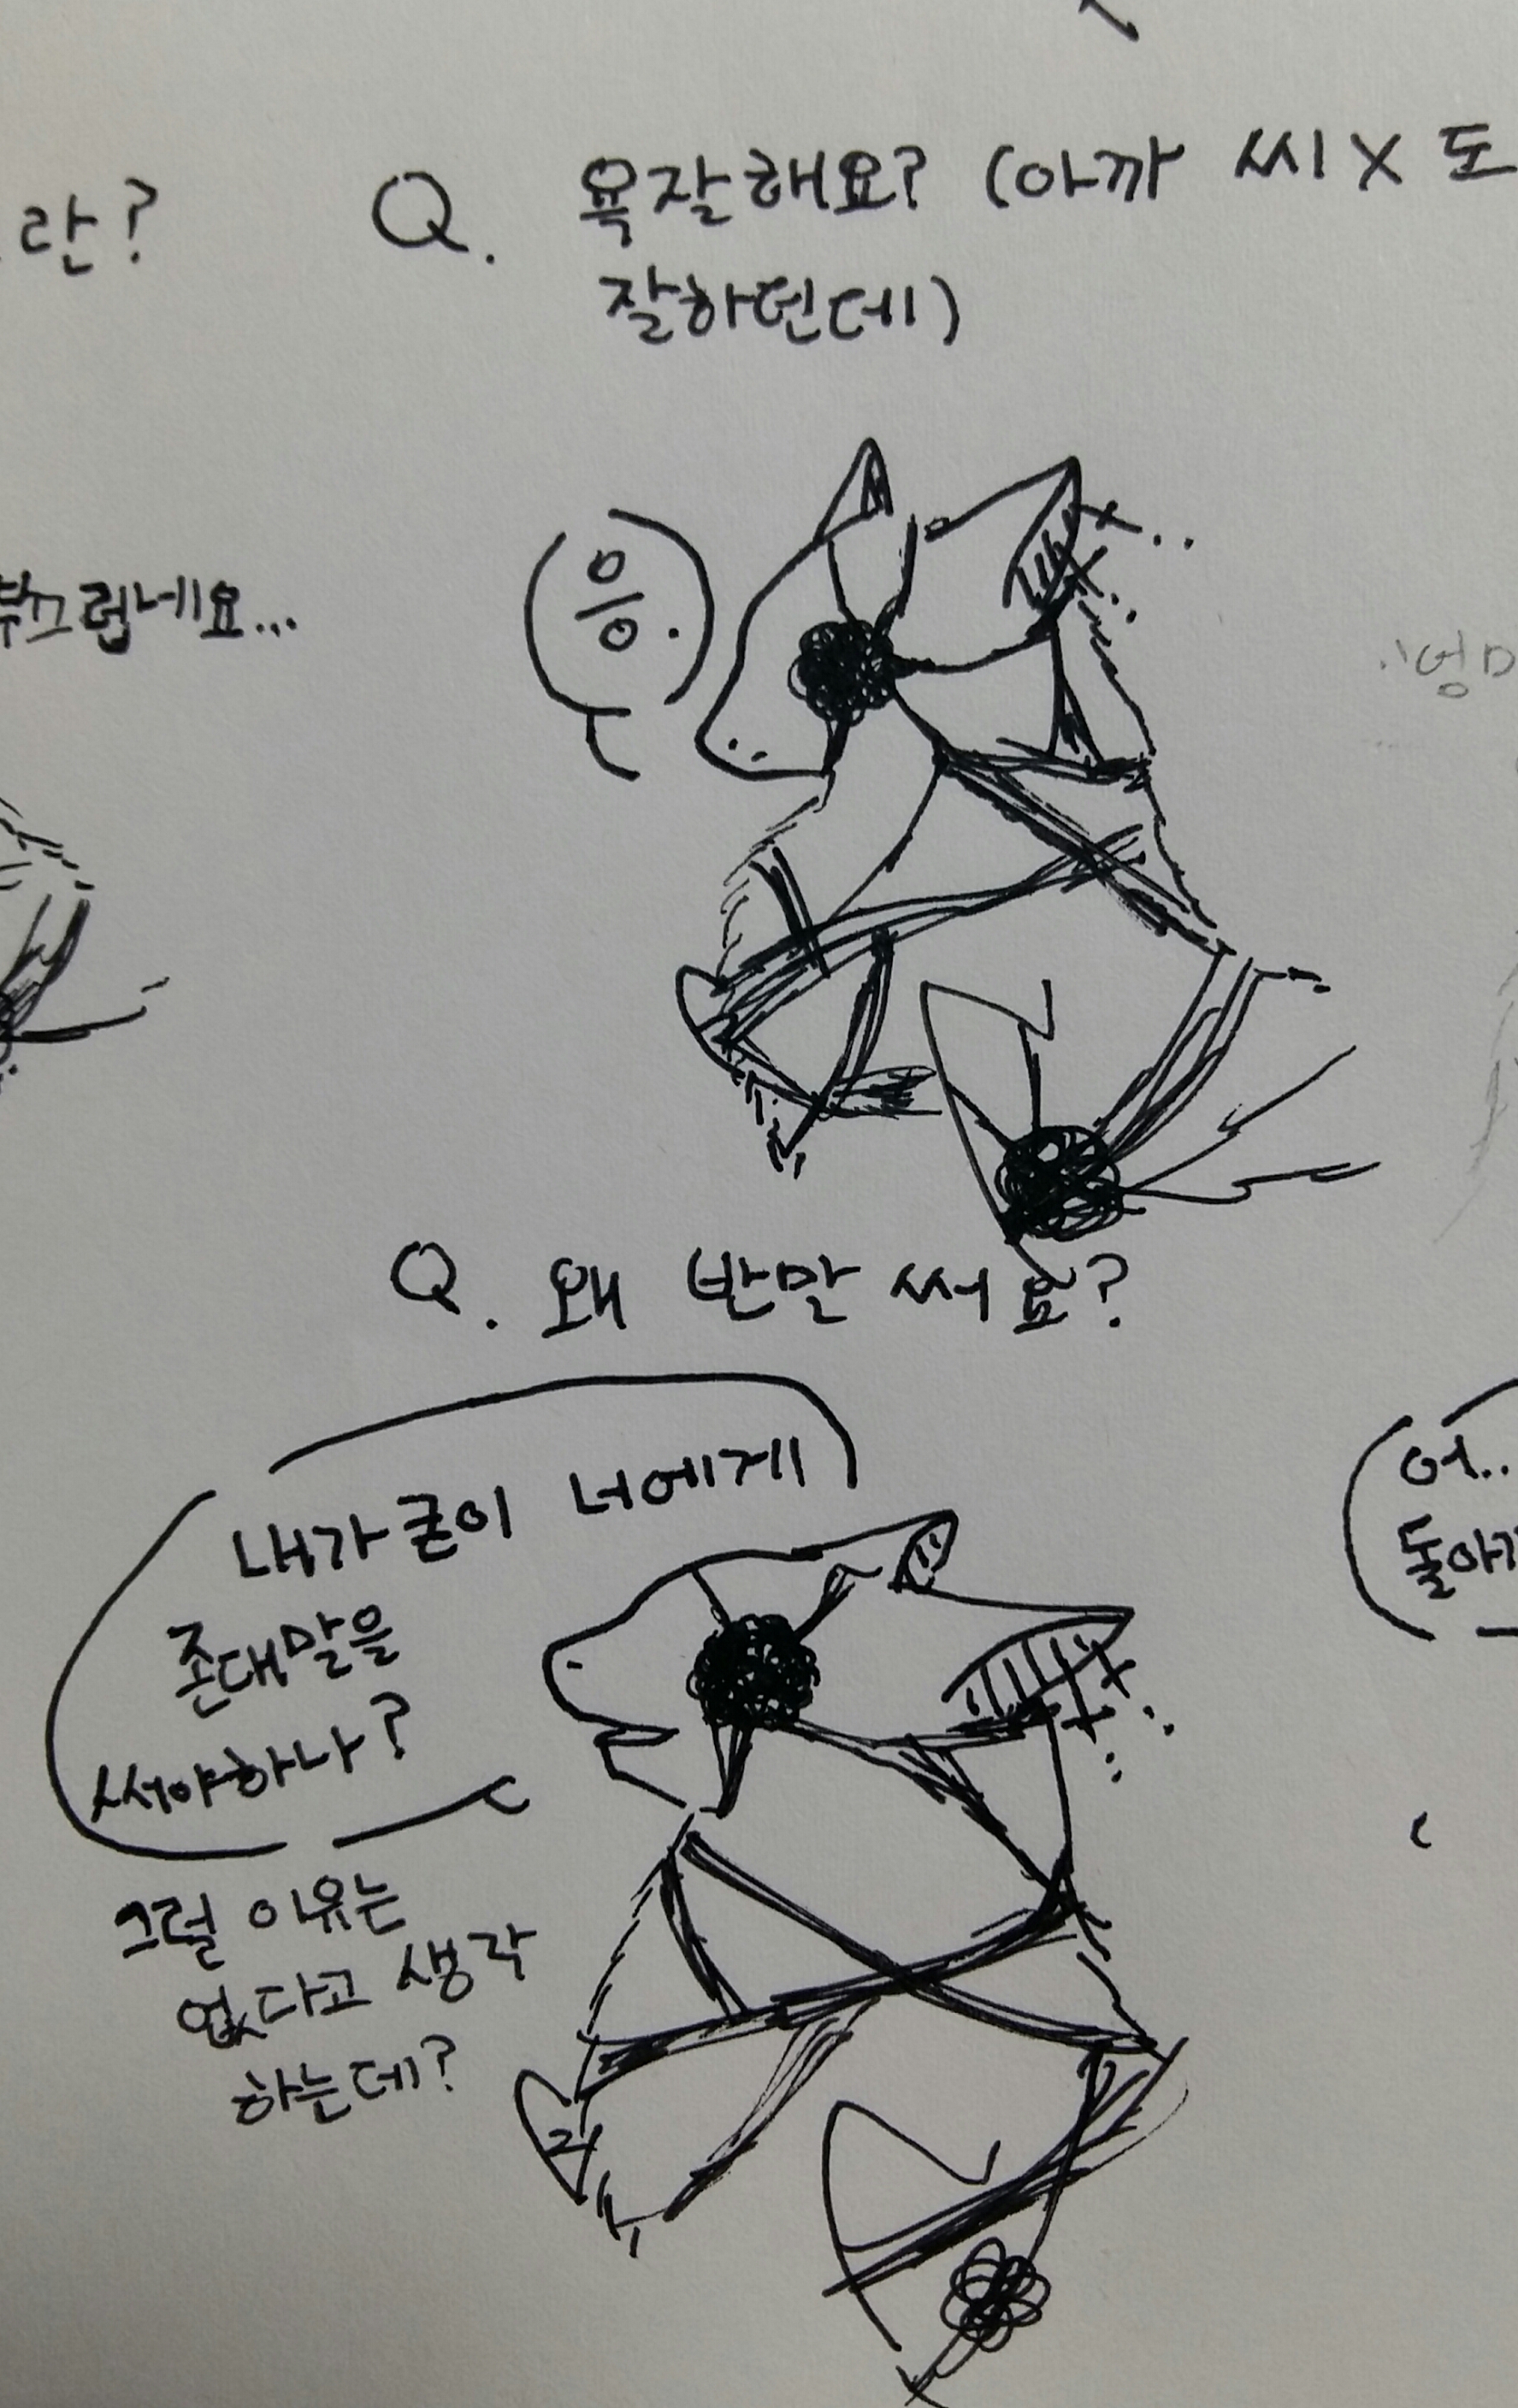 란?
Q. 욕잘해요? (아까 씨X 도
잘하던데)
부끄럽네요...
응.
Q. 왜 반말 써요?
내가 굳이 너에게
존대말을
써야하나?
그럴 이유는
없다고 생각
하는데?
어..